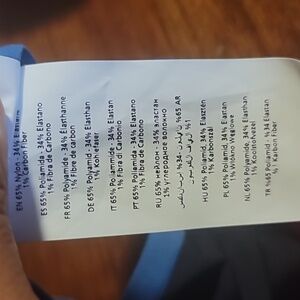 EN 65% Nylon - 34% Elastane
1% Carbon Fiber
ES 65% Poliamida - 34% Elastano
1% Fibra de Carbono
FR 65% Polyamide - 34% Elasthanne
1% Fibre de carbon
DE 65% Polyamid - 34% Elasthan
1%
IT 65% Poliammide - 34% Elastan
1% Fibra di Carbonio
PT 65% Poliamida - 34% Elastano
1% Fibra de Carbono
RU 65% нейлон - 34% эластан
1% углеродное волокно
HU 65% Poliamid, 34% Elasztén
1% Karbonszál
PL 65% Poliamid, 34% Elastan
1% Włókno Węglowe
NL 65% Polyamide, 34% Elastan
1% Koolstofvezel
TR %65 Poliamid - %34 Elastan
Karbon Fiber